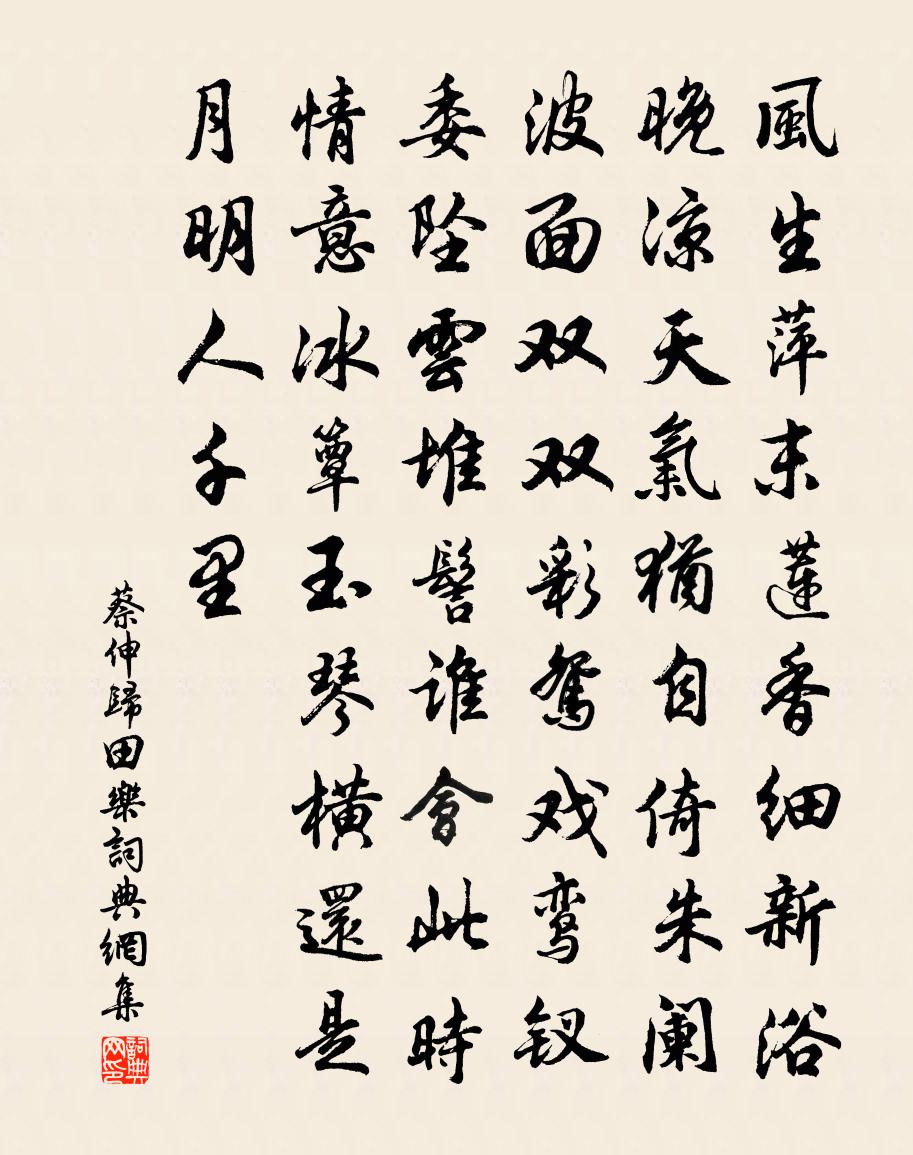 風生萍末蓮香細新浴
晚凉天氣猶自倚朱阑
波面双双彩鸳戏鸾钗
委坠雲堆髻誰會此時
情意冰簟玉琴橫還是
月明人千里
蔡伸歸田樂詞典網集
詞典网印